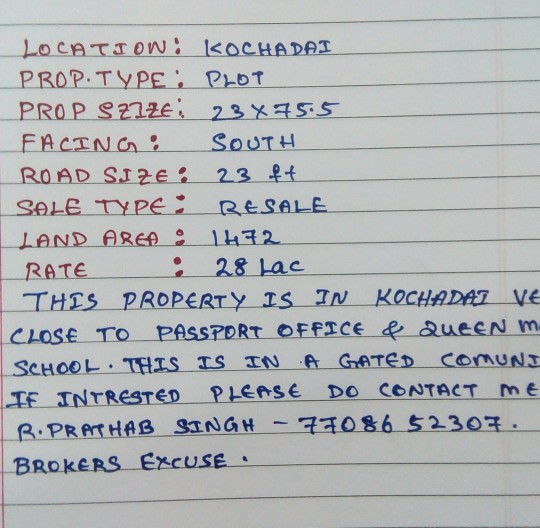 LOCATION: KOCHADAI
PROP.TYPE: PLOT
PROP SZIZE: 23X75.5
FACING: SOUTH
ROAD SIZE: 23 ft
SALE TYPE: RESALE
LAND AREA: 1472
RATE : 28 Lac
THIS PROPERTY IS IN KOCHADAI VE
CLOSE TO PASSPORT OFFICE & QUEEN M
SCHOOL. THIS IS IN A GATED COMUNI
IF INTRESTED PLEASE DO CONTACT ME
R.PRATHAB SINGH - 77086 52307.
BROKERS EXCUSE.